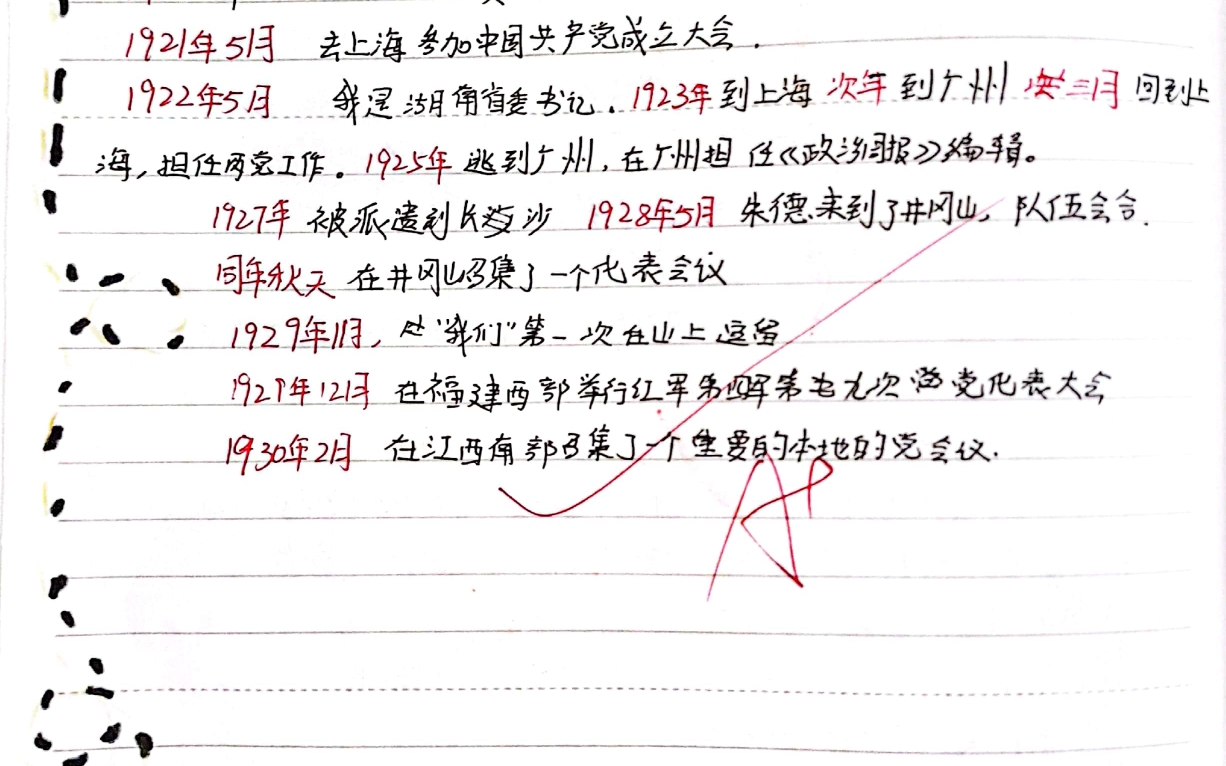 1921年5月 去上海参加中国共产党成立大会.
1922年5月 我是湖南省委书记. 1923年到上海 次年到广州 三月 回到上
海,担任两党工作。1925年 逃到广州,在广州担任《政治周报》编辑。
1927年 被派遣到长沙 1928年5月 朱德来到了井冈山, 队伍会合.
同年秋天 在井冈山召集了一个代表会议
1929年1月, "我们"第一次在山上逗留
1929年12月 在福建西部举行红军第四军第九次党代表大会
1930年2月 在江西南部召集了一个重要的本地的党会议.
A+